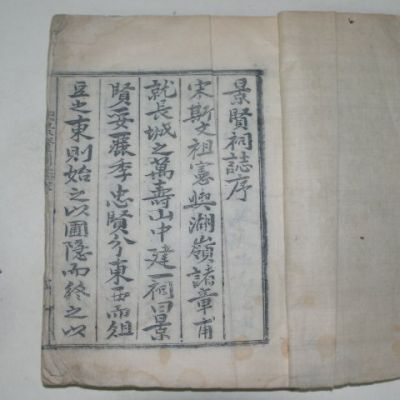 景賢祠誌序
宋斯文祖憲與湖嶺諸章甫
就長城之萬壽山中建一祠曰景
賢妥麗季忠賢分東西而俎
豆之東則始之以圃隐而終之以